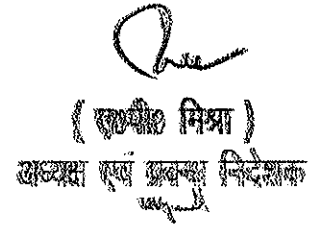 ( ए०पी० मिश्रा )
अध्यक्ष एवं प्रबन्ध निदेशक